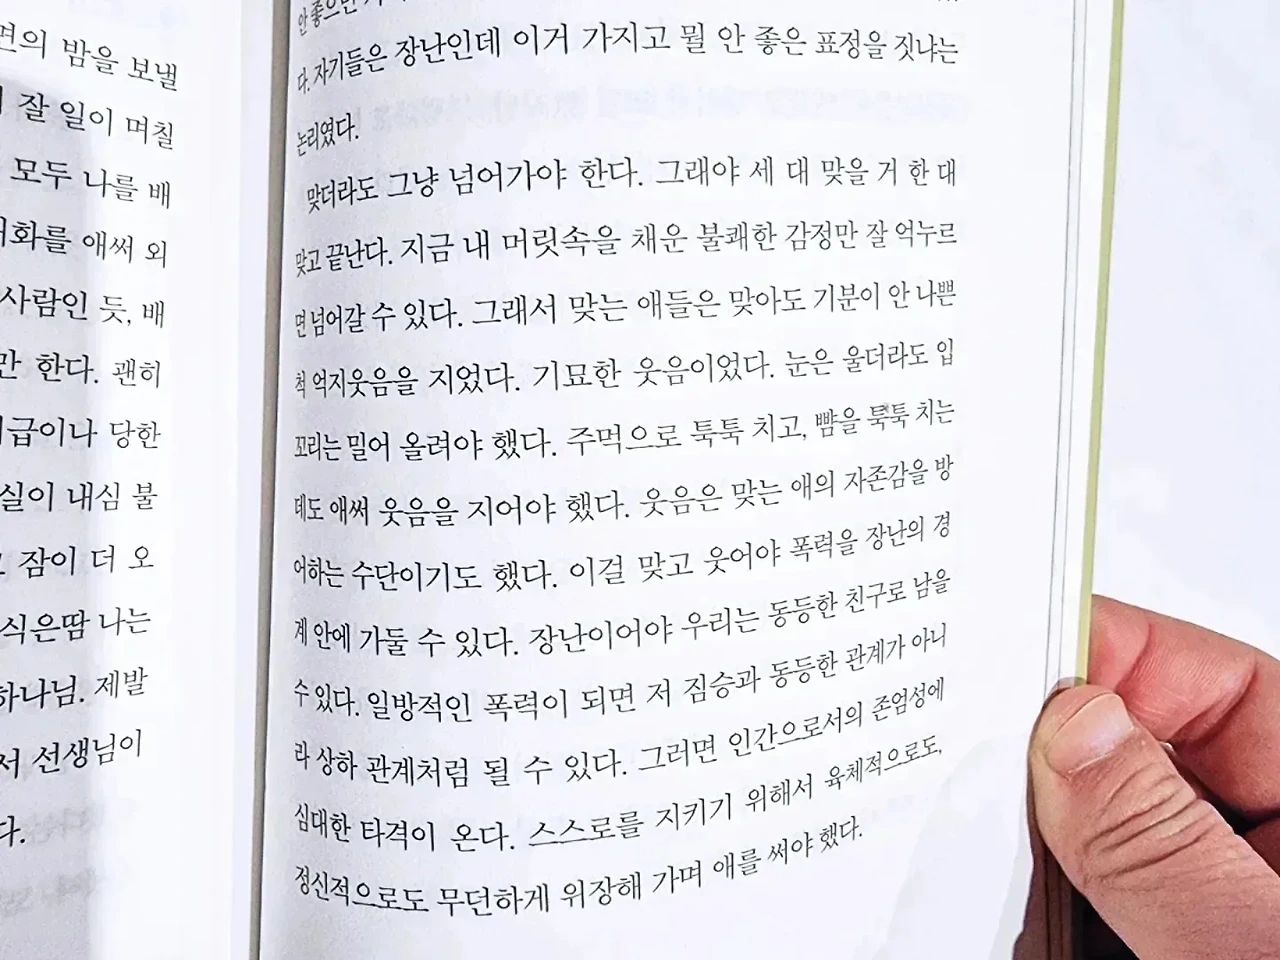 면의 밤을 보낼
잘 일이 며칠
모두 나를 배
애써 외
사람인 듯, 배
한다. 괜히
당한
내심 불
잠이 더 오
식은땀 나는
하나님. 제발
선생님이
다.
안 좋으면
다. 자기들은 장난인데 이거 가지고 뭘 안 좋은 표정을 짓냐는
논리였다.
맞더라도 그냥 넘어가야 한다. 그래야 세 대 맞을 거 한 대
맞고 끝난다. 지금 내 머릿속을 채운 불쾌한 감정만 잘 억누르
면 넘어갈 수 있다. 그래서 맞는 애들은 맞아도 기분이 안 나쁜
척 억지웃음을 지었다. 기묘한 웃음이었다. 눈은 울더라도 입
꼬리는 밀어 올려야 했다. 주먹으로 툭툭 치고, 뺨을 툭툭 치는
데도 애써 웃음을 지어야 했다. 웃음은 맞는 애의 자존감을 방
어하는 수단이기도 했다. 이걸 맞고 웃어야 폭력을 장난의 경
계 안에 가둘 수 있다. 장난이어야 우리는 동등한 친구로 남을
수 있다. 일방적인 폭력이 되면 저 짐승과 동등한 관계가 아니
라 상하 관계처럼 될 수 있다. 그러면 인간으로서의 존엄성에
심대한 타격이 온다. 스스로를 지키기 위해서 육체적으로도,
정신적으로도 무던하게 위장해 가며 애를 써야 했다.